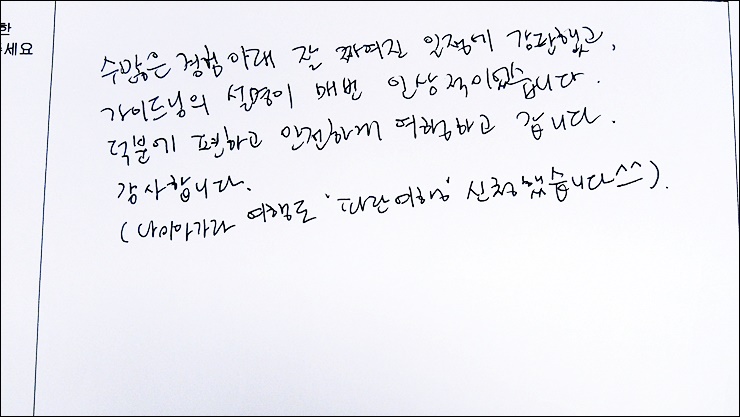 한
세요
수많은 경험 아래 잘 짜여진 일정에 감탄했고,
가이드님의 설명이 매번 인상적이었습니다.
덕분에 편하고 안전하게 여행하고 갑니다.
감사합니다.
(나이아가라 여행도 '파란여행' 신청했습니다^^).